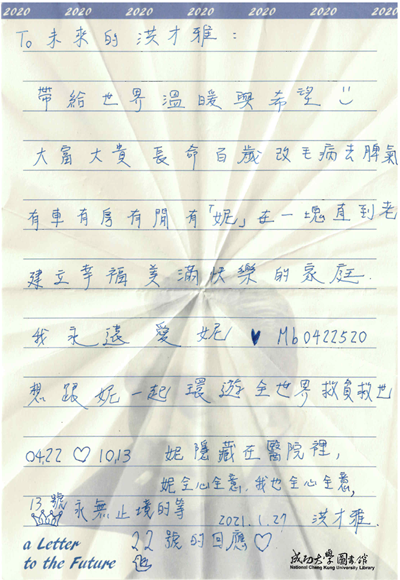 2020 2020 2020 2020 2020 2020 2020
To 未來的 洪才雅：
帶給世界溫暖與希望
大富大貴 長命百歲 改毛病去脾氣
有車有房有閒有「妮」在一塊直到老
建立幸福美滿快樂的家庭.
我永遠愛妮 ♥ Mb0422520
想跟妮一起環遊全世界救貧救世
0422 ♡ 10.13 妮隱藏在醫院裡，
妮全心全意，我也全心全意，
13號 永無止境的等 2021.1.27 洪才雅.
22號的回應♡
a Letter
to the Future
成功大學圖書館
National Cheng Kung University Library